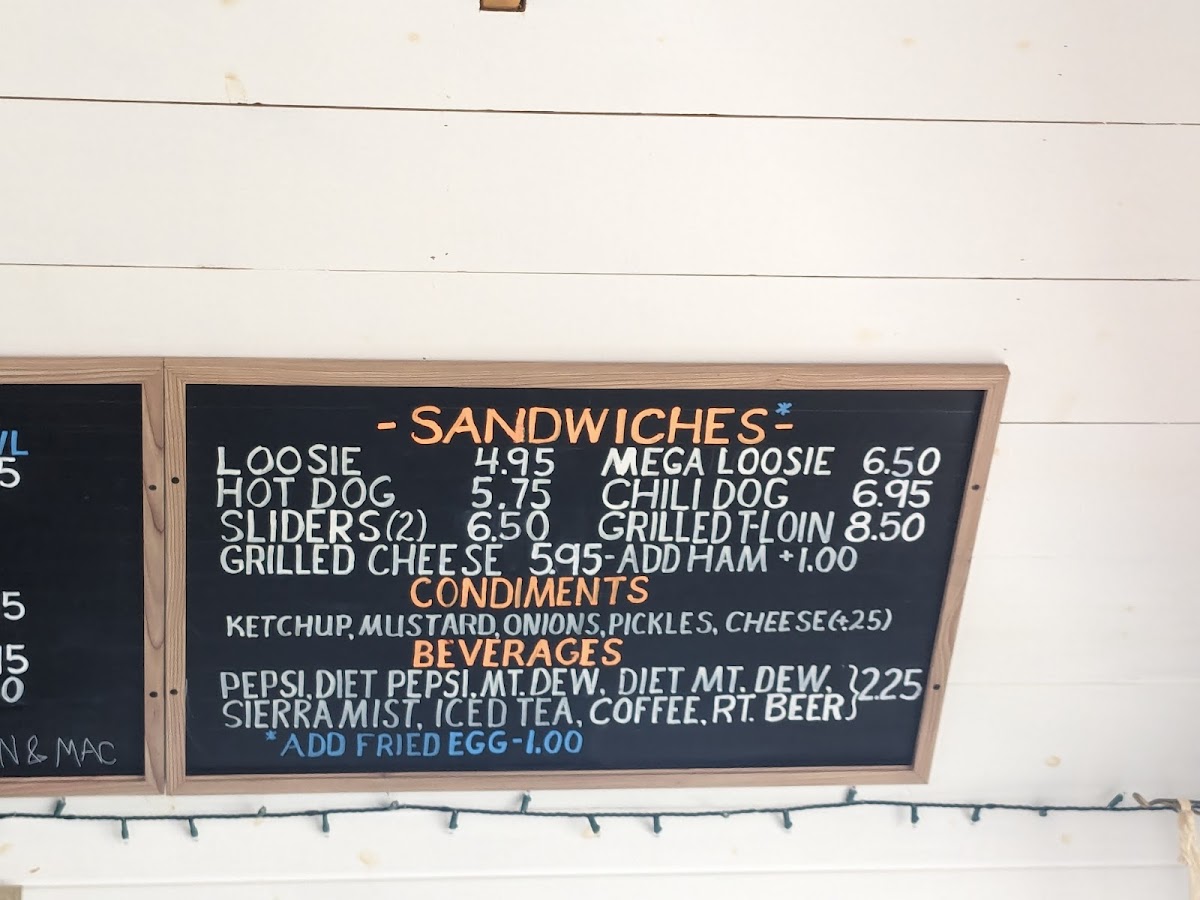 -SANDWICHES*-
LOOSIE 4.95 MEGA LOOSIE 6.50
HOT DOG 5.75 CHILI DOG 6.95
SLIDERS(2) 6.50 GRILLED T-LOIN 8.50
GRILLED CHEESE 5.95-ADD HAM +1.00
CONDIMENTS
KETCHUP, MUSTARD, ONIONS, PICKLES, CHEESE(+.25)
BEVERAGES
PEPSI, DIET PEPSI, MT. DEW, DIET MT. DEW, }2.25
SIERRA MIST, ICED TEA, COFFEE, RT. BEER
*ADD FRIED EGG-1.00
& MAC